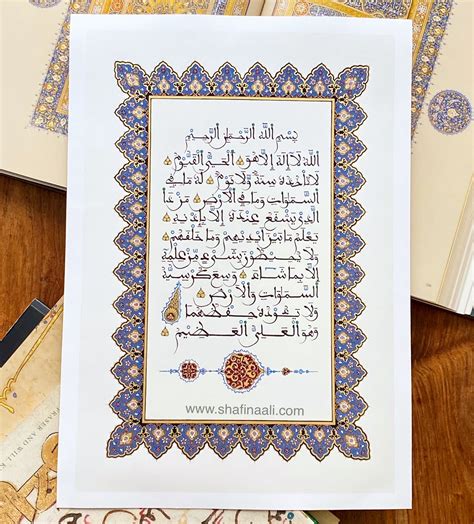 بسم الله الرحمن الرحيم
الله لا إله إلا هو الحي القيوم
لا تأخذه سنة ولا نوم له ما في
السموات وما في الأرض من ذا
الذي يشفع عنده إلا بإذنه
يعلم ما بين أيديهم وما خلفهم
ولا يحيطون بشيء من علمه
إلا بما شاء وسع كرسيه
السموات والأرض
ولا يئوده حفظهما
وهو العلي العظيم
www.shafinaali.com
AND WILL